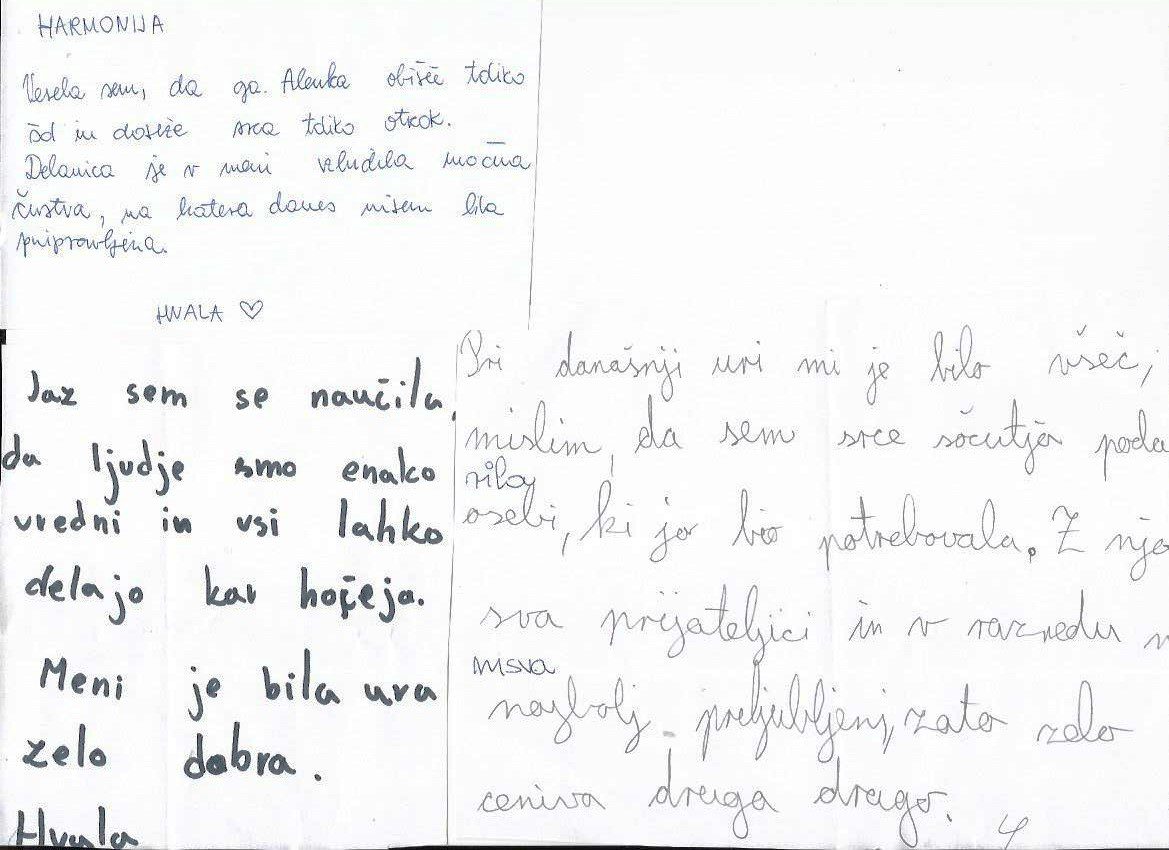 HARMONIJA
Vesela sem, da ga. Alenka obišče toliko
šol in doseže srca toliko otrok.
Delavnica je v meni vzbudila močna
čustva, na katera danes nisem bila
pripravljena.
HVALA ♡
Jaz sem se naučila,
da ljudje smo enako
vredni in vsi lahko
delajo kar hočejo.
Meni je bila ura
zelo dobra.
Hvala
Pri današnji uri mi je bilo všeč,
mislim, da sem srce sočutja poda
osebi, ki jo bo potrebovala. Z njo
sva prijateljici in v razredu n
nisva
najbolj priljubljeni, zato zelo
ceniva druga drugo.